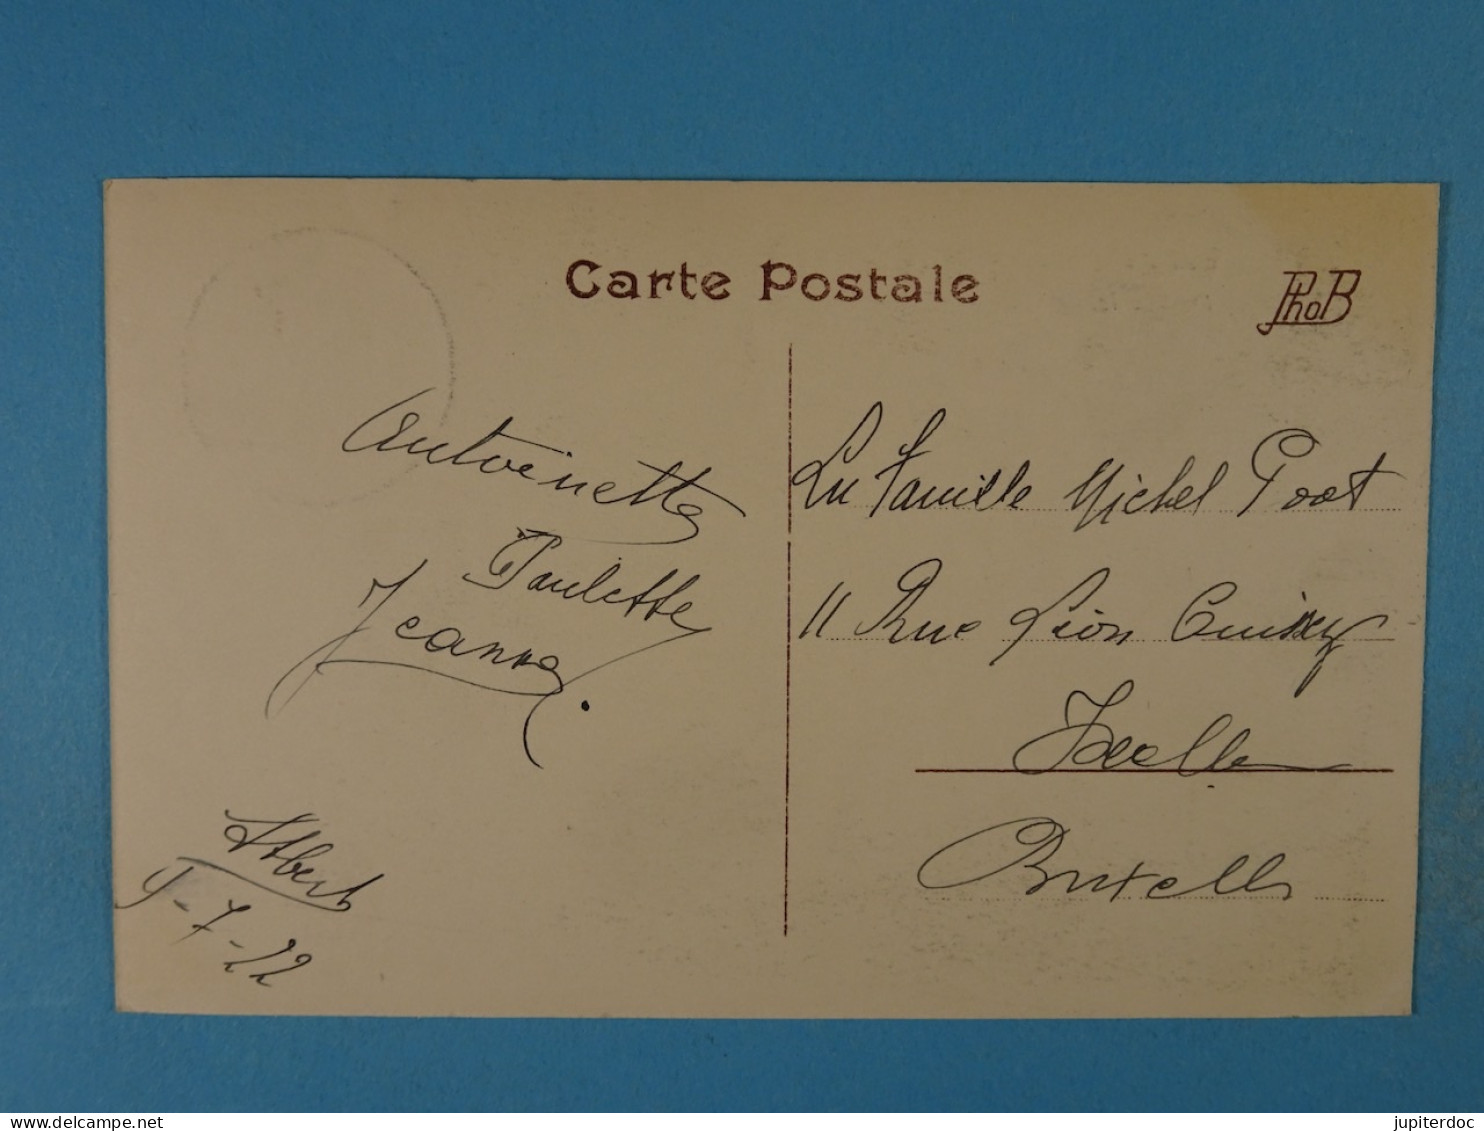 Carte Postale
PhoB
Antoinette
Paulette
Jeanne.
Albert
5-7-22
La Famille Michel Poot
11 Rue Léon Cuissez
Ixelles
Bruxelles
delcampe.net
jupiterdoc